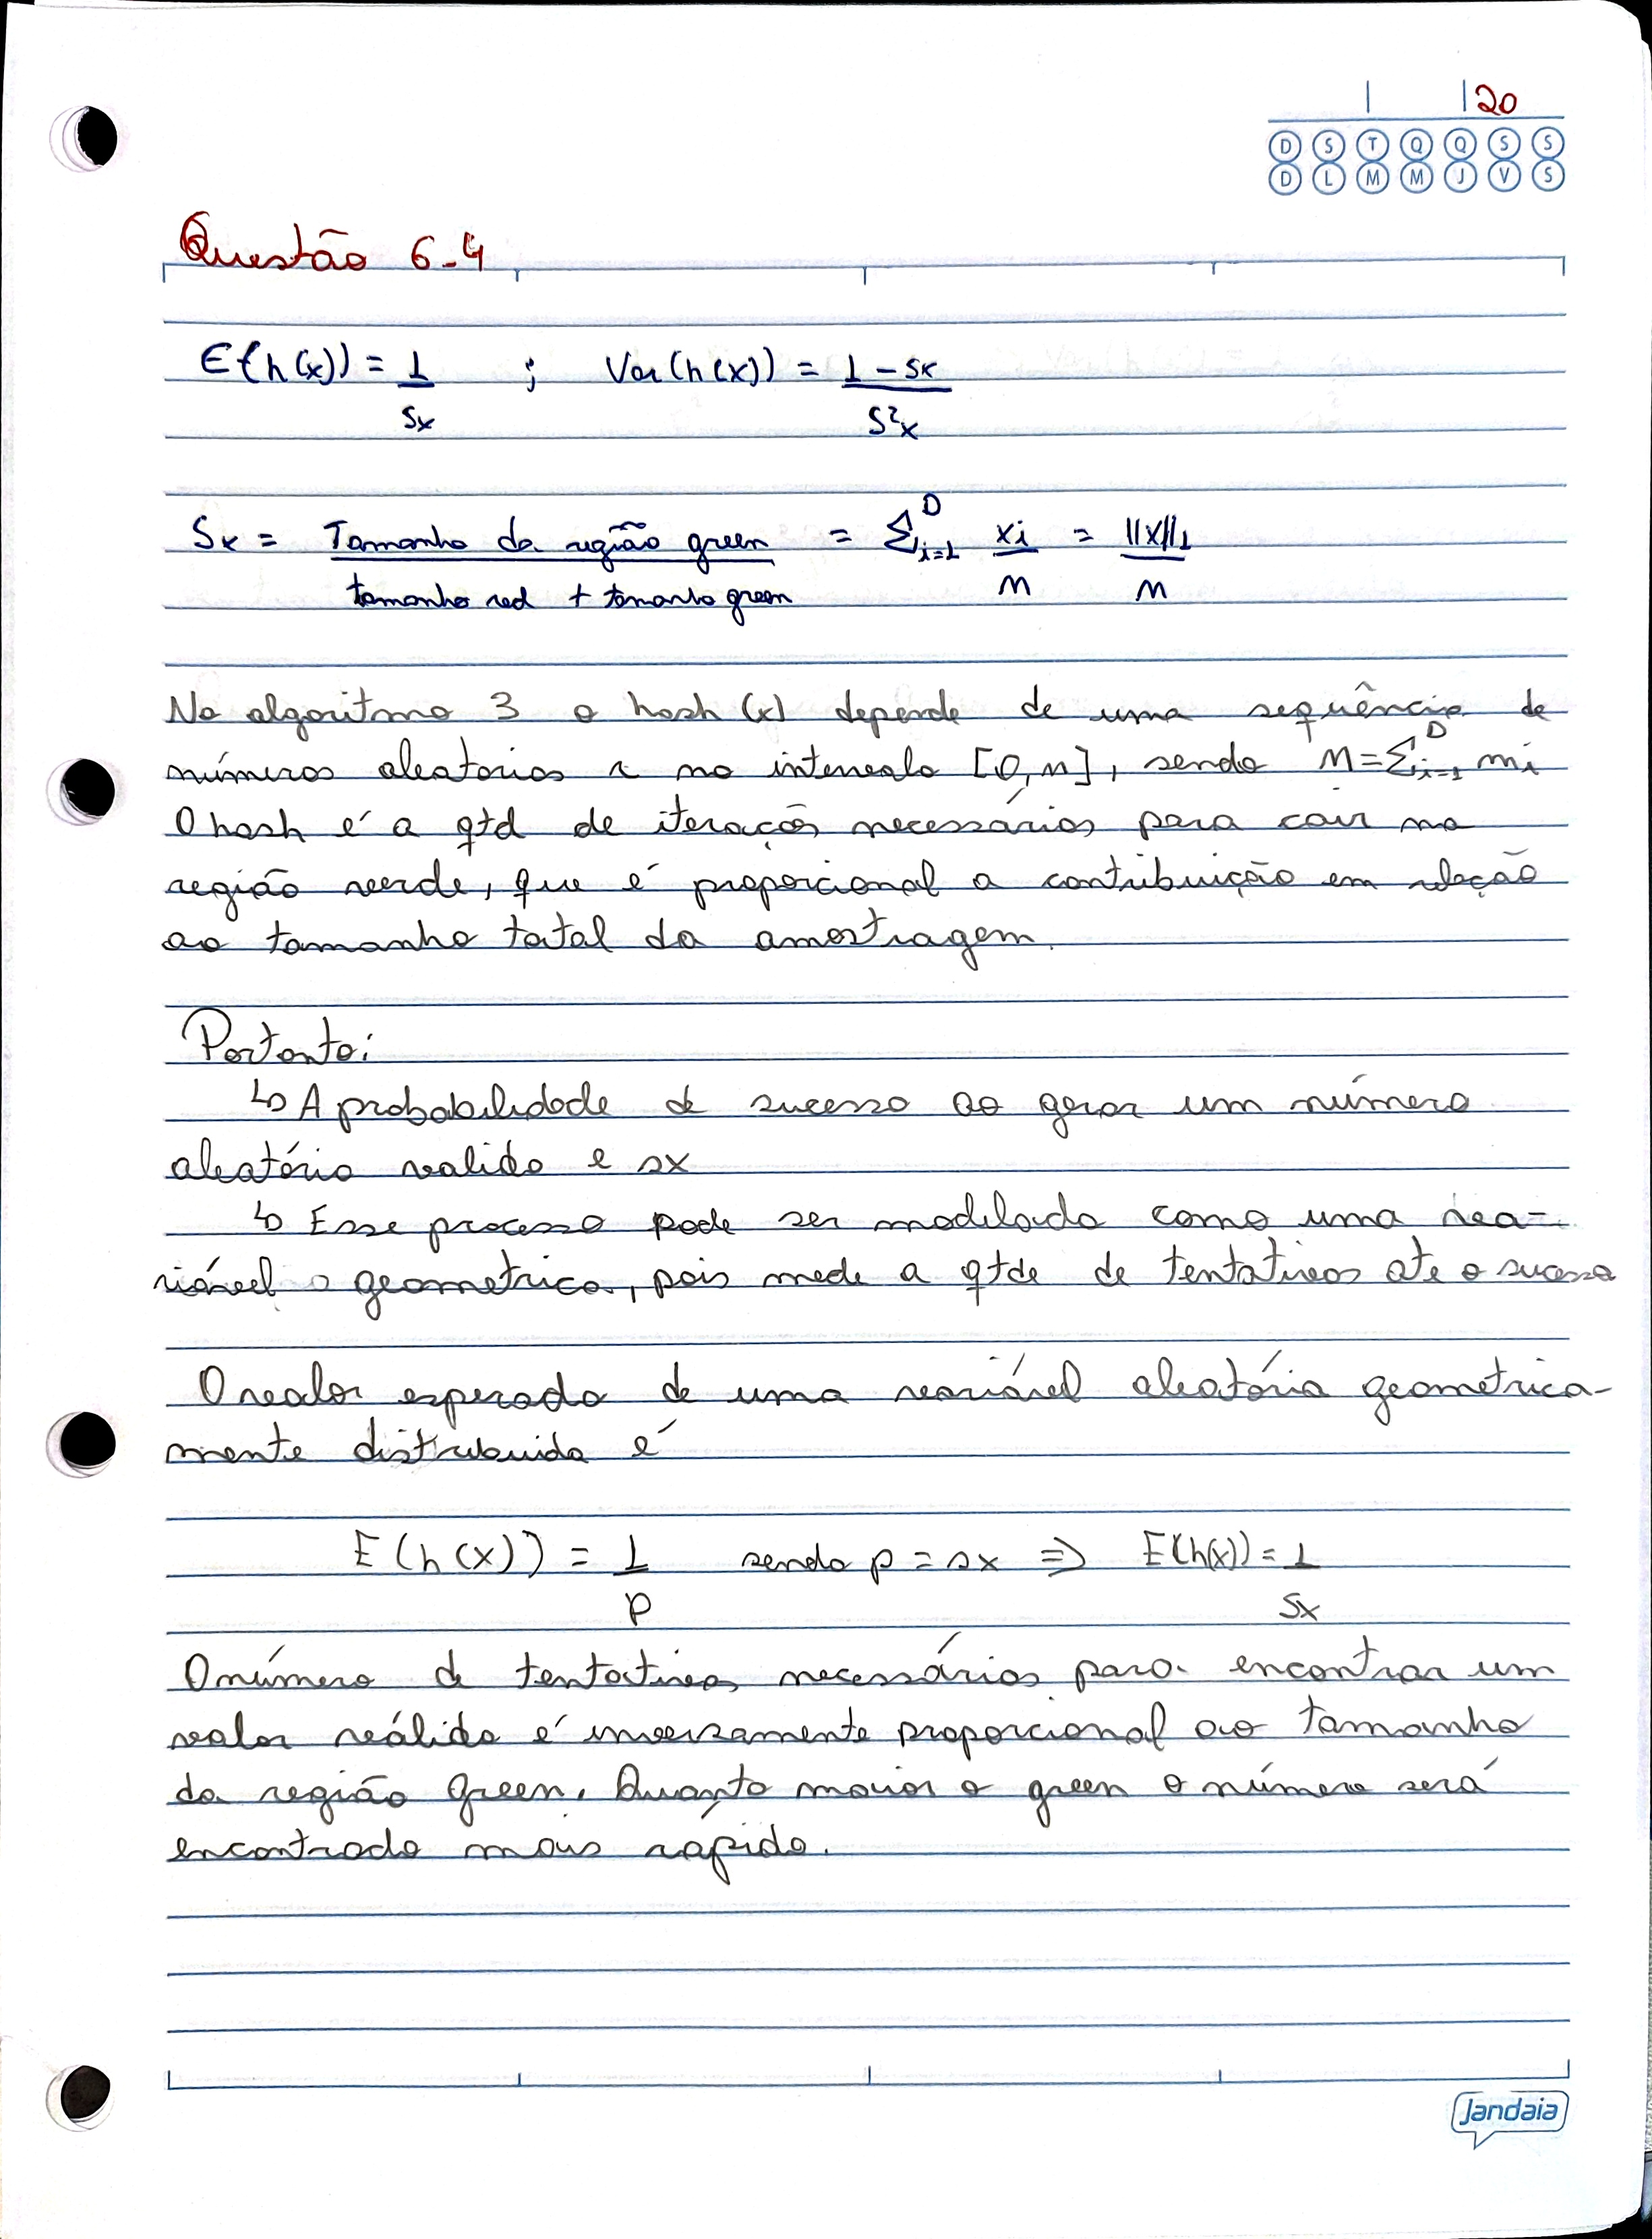 20
D S T Q Q S S
D L M M J V S
Questão 6-4
E(h(x)) = 1/Sx ; Var(h(x)) = 1-Sx/S²x
Sx = Tamanho da região green / tamanho red + tamanho green = Σ_{i=1}^{D} xi/M = ||x||1/M
No algoritmo 3 o hash (x) depende de uma sequência de
números aleatorios r no intervalo [0,M], sendo M=Σ_{i=1}^{D} mi
O hash é a qtd de iteraçõs necessários para cair na
região verde, que é proporcional a contribuição em relação
ao tamanho total da amostragem.
Portanto:
↳ A probabilidade de sucesso ao gerar um número
aleatório valido e sx
↳ Esse processo pode ser modelado como uma va-
riável geometrica, pois mede a qtde de tentativas ate o sucesso
O valor esperado de uma variável aleatória geometrica-
mente distribuida é
E(h(x)) = 1/p sendo p = sx ⇒ E(h(x)) = 1/Sx
O número de tentativas necessários para encontrar um
valor válido é inversamente proporcional ao tamanho
da região green. Quanto maior o green o número será
encontrado mais rápido.
Jandaia